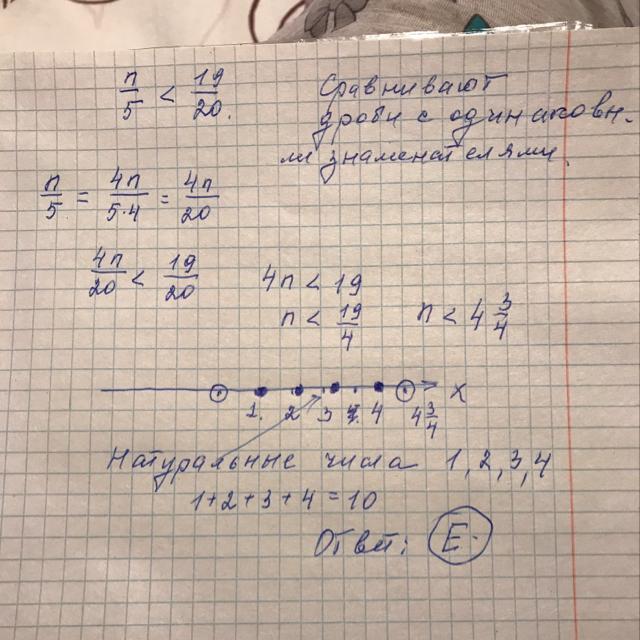 n/5 < 19/20.
Сравнивают
дроби с одинаковы-
ми знаменателями.
n/5 = 4n/5·4 = 4n/20
4n/20 < 19/20
4n < 19
n < 19/4
n < 4 3/4
x
1. 2 3 4 4 3/4
Натуральные числа 1, 2, 3, 4
1+2+3+4 = 10
Ответ: E.